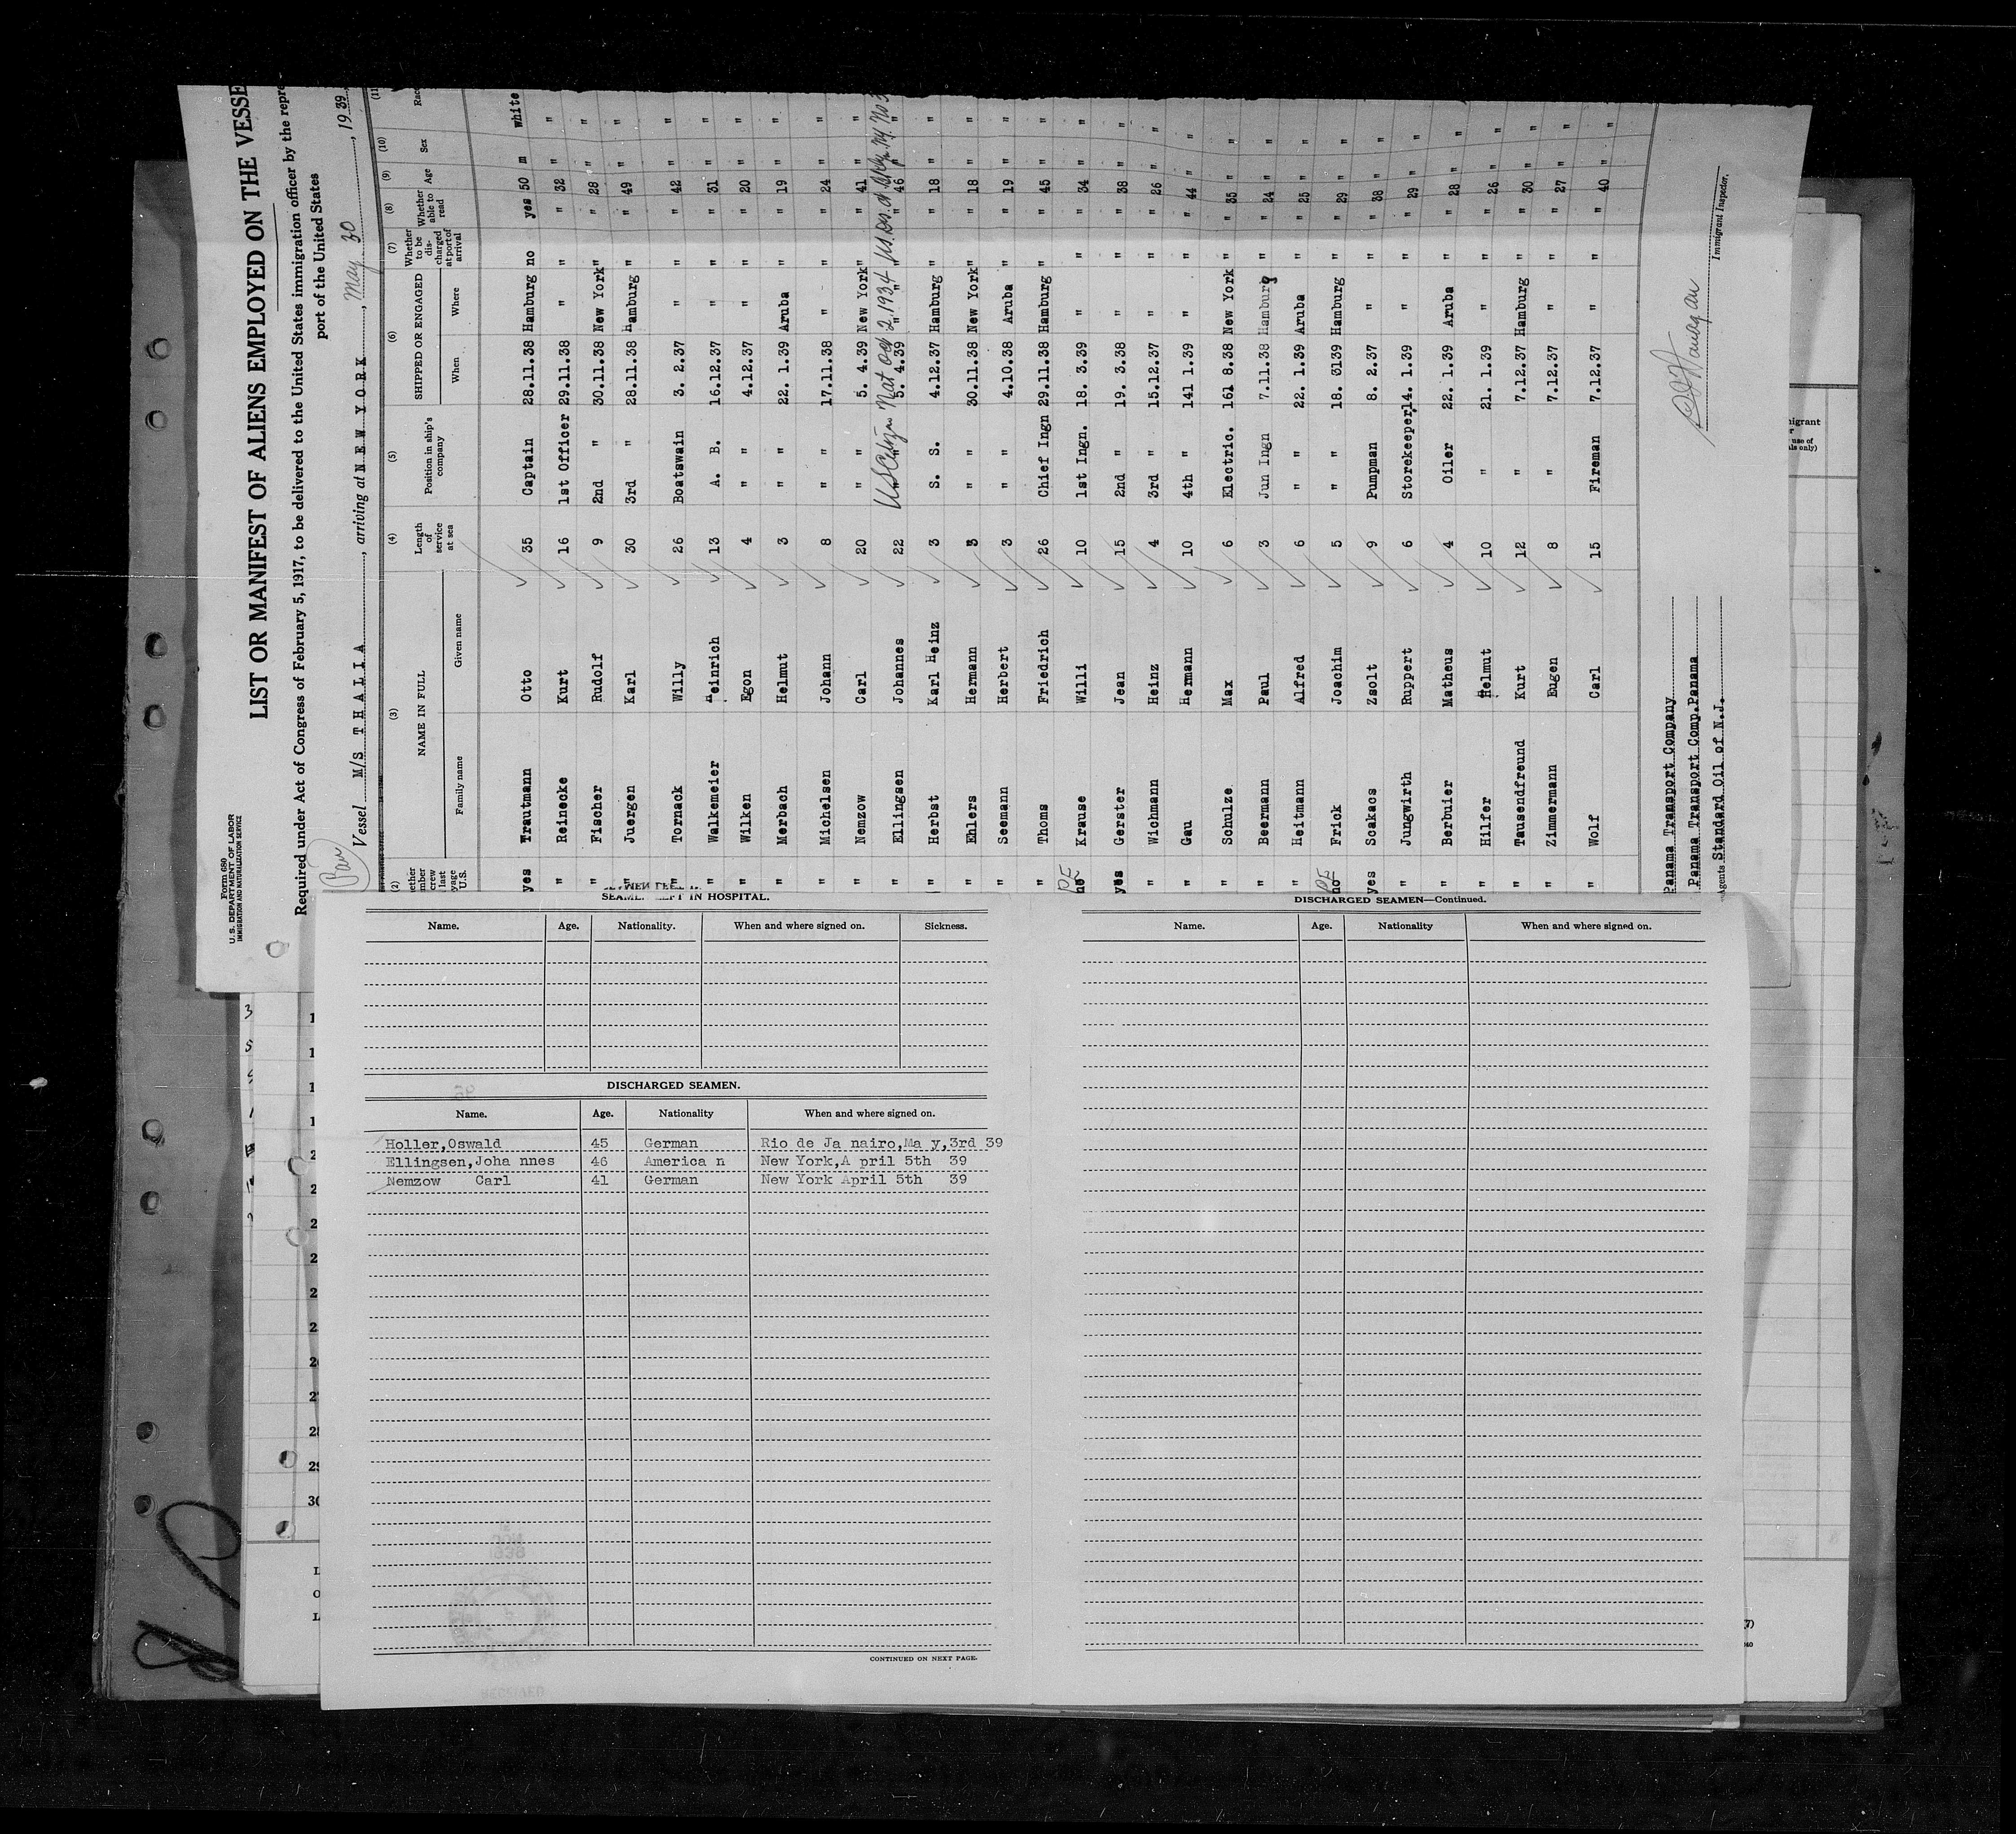 Form 680
U. S. DEPARTMENT OF LABOR
IMMIGRATION AND NATURALIZATION SERVICE
LIST OR MANIFEST OF ALIENS EMPLOYED ON THE VESSE
Required under Act of Congress of February 5, 1917, to be delivered to the United States immigration officer by the repre
port of the United States
Vessel M/S THALLA, arriving at NEW YORK, May 30, 1939
(2) (3) (4) (5) (6) (7) (8) (9) (10) (11
ether mber crew last yage U.S. NAME IN FULL Family name Given name Length of service at sea Position in ship's company SHIPPED OR ENGAGED When Where Whether to be discharged at port of arrival Whether able to read Age Sex Race
yes Trautmann Otto 35 Captain 28.11.38 Hamburg no yes 50 m white
" Reinecke Kurt 16 1st Officer 29.11.38 " " " 32 " "
" Fischer Rudolf 9 2nd " 30.11.38 New York " " 28 " "
" Juergen Karl 30 3rd " 28.11.38 Hamburg " " 49 " "
" Tornack Willy 26 Boatswain 3. 2.37 " " " 42 " "
" Walkemeier Heinrich 13 A. B. 16.12.37 " " " 31 " "
" Wilken Egon 4 " 4.12.37 " " " 20 " "
" Merbach Helmut 3 " 22. 1.39 Aruba " " 19 " "
" Michelsen Johann 8 " 17.11.38 " " " 24 " "
" Nemzow Carl 20 " 5. 4.39 New York " " 41 " "
US Citizen Nat Oct 2, 1934
" Ellingsen Johannes 22 " 5. 4.39 " " " 46 " "
" Herbst Karl Heinz 3 S. S. 4.12.37 Hamburg " " 18 " "
" Ehlers Hermann 3 " 30.11.38 New York " " 18 " "
" Seemann Herbert 3 " 4.10.38 Aruba " " 19 " "
" Thoms Friedrich 26 Chief Ingn 29.11.38 Hamburg " " 45 " "
no Krause Willi 10 1st Ingn. 18. 3.39 " " " 34 " "
yes Gerster Jean 15 2nd " 19. 3.38 " " " 38 " "
" Wichmann Heinz 4 3rd " 15.12.37 " " " 26 " "
" Gau Hermann 10 4th " 141 1.39 " " " 44 " "
" Schulze Max 6 Electric. 161 8.38 New York " " 35 " "
" Beermann Paul 3 Jun Ingn 7.11.38 Hamburg " " 24 " "
" Heitmann Alfred 6 " 22. 1.39 Aruba " " 25 " "
no Frick Joachim 5 " 18. 3139 Hamburg " " 29 " "
yes Scakacs Zsolt 9 Pumpman 8. 2.37 " " " 38 " "
" Jungwirth Ruppert 6 Storekeeper 14. 1.39 " " " 29 " "
" Berbuier Matheus 4 Oiler 22. 1.39 Aruba " " 28 " "
" Hilfer Helmut 10 " 21. 1.39 " " " 26 " "
" Tausendfreund Kurt 12 " 7.12.37 Hamburg " " 30 " "
" Zimmermann Eugen 8 " 7.12.37 " " " 27 " "
" Wolf Carl 15 Fireman 7.12.37 " " " 40 " "
Panama Transport Company
Panama Transport Comp.Panama
Agents Standard Oil of N.J.
Immigrant Inspector.
SEAMEN LEFT IN HOSPITAL.
Name. Age. Nationality. When and where signed on. Sickness.
DISCHARGED SEAMEN.
Name. Age. Nationality When and where signed on.
Holler,Oswald 45 German Rio de Ja nairo,Ma y,3rd 39
Ellingsen,Joha nnes 46 America n New York,A pril 5th 39
Nemzow Carl 41 German New York April 5th 39
CONTINUED ON NEXT PAGE.
DISCHARGED SEAMEN—Continued.
Name. Age. Nationality When and where signed on.
28
29
30